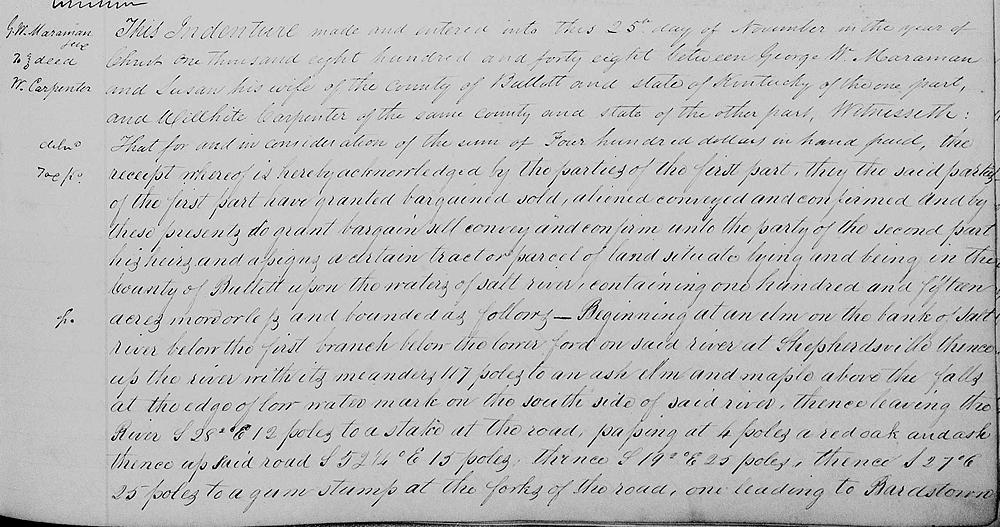 G.W. Maraman
&c
To } deed
W. Carpenter
This Indenture made and entered into this 25th day of November in the year of
Christ one thousand eight hundred and forty eight between George W. Maraman
and Susan his wife of the county of Bullett and state of Kentucky of the one part,
and Willhite Carpenter of the same county and state of the other part, Witnesseth:
That for and in consideration of the sum of Four hundred dollars in hand paid, the
receipt whereof is hereby acknowledged by the parties of the first part, they the said parties
of the first part have granted bargained sold, aliened conveyed and confirmed and by
these presents do grant bargain sell convey and confirm unto the party of the second part
his heirs and assigns a certain tract or parcel of land situate lying and being in the
County of Bullett upon the waters of salt river, containing one hundred and fifteen
acres more or less and bounded as follows — Beginning at an elm on the bank of Salt
river below the first branch below the lower ford on said river at Shepherdsville thence
up the river with its meanders 117 poles to an ash elm and maple above the falls
at the edge of low water mark on the south side of said river, thence leaving the
River S 28° E 12 poles to a stake at the road, passing at 4 poles a red oak and ash
thence up said road S 52 1/4° E 15 poles, thence S 19° E 25 poles, thence S 27° E
25 poles to a gum stump at the forks of the road, one leading to Bardstown